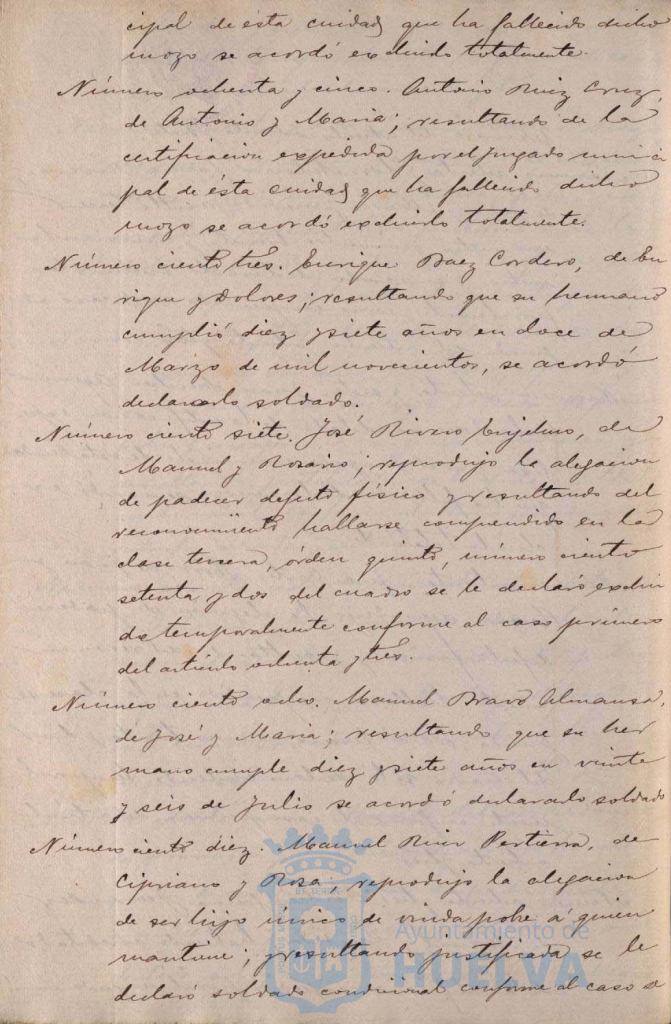 cipal de ésta ciudad que ha fallecido dicho
mozo se acordó excluirlo totalmente.
Número ochenta y cinco. Antonio Ruiz Cruz,
de Antonio y Maria; resultando de la
certificacion expedida por el Juzgado munici
pal de ésta ciudad que ha fallecido dicho
mozo se acordó excluirlo totalmente.
Número ciento tres. Enrique Baez Cordero, de En
rique y Dolores; resultando que su hermano
cumplió diez y siete años en doce de
Marzo de mil novecientos, se acordó
declararlo soldado.
Número ciento siete. José Rivero, de
Manuel y Rosario; reprodujo la alegacion
de padecer defecto físico y resultando del
reconocimiento hallarse comprendido en la
clase tercera, órden quinto, número ciento
setenta y dos del cuadro se le declaró exclui
do temporalmente conforme al caso primero
del artículo ochenta y tres.
Número ciento ocho. Manuel Bravo Almansa,
de José y Maria; resultando que su her
mano cumple diez y siete años en veinte
y seis de Julio se acordó declararlo soldado
Número ciento diez. Manuel Pertierra, de
Cipriano y Rosa, reprodujo la alegacion
de ser hijo único de viuda pobre á quien
mantiene; y resultando justificada se le
declaró soldado condicional conforme al caso
Ayuntamiento de
HUELVA